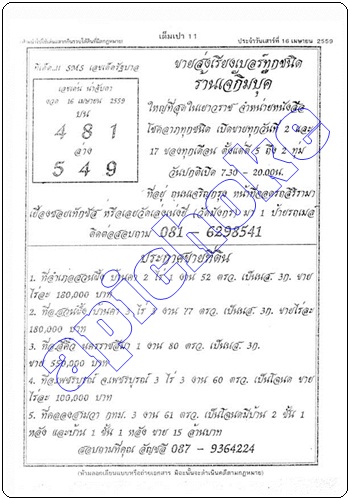 เต็มเปา 11
ประจำวันเสาร์ที่ 16 เมษายน 2559
ทีเด็ด.. SMS เลขเด็ดรัฐบาล
เลขเด่น น่าจับตา
งวด 16 เมษายน 2559
บน
481
ล่าง
549
ขายส่งเรียงเบอร์ทุกชนิด
ร้านเจ้กิมบุ๊ค
ใหญ่ที่สุดในเยาวราช จำหน่ายหนังสือ
โชคลาภทุกชนิด เปิดขายทุกวันที่ 2 และ
17 ของทุกเดือน ตั้งแต่ตี 5 ถึง 2 ทุ่ม
วันปกติเปิด 7.30 - 20.00น.
ที่อยู่ ถนนเจริญกรุง หน้าที่จอดรถสิริรามา
เยื้องซอยเท็กซัส หรือเลยวัดเล่งเน่ยยี่ (วัดมังกร) มา 1 ป้ายรถเมล์
ติดต่อสอบถาม 081 - 6298541
ประกาศขายที่ดิน
1. ที่อำเภอสวนผึ้ง บ้านคา 2 ไร่ 1 งาน 52 ตรว. เป็นนส. 3ก. ขาย
ไร่ละ 180,000 บาท
2. ที่อ.สวนผึ้ง บ้านคา 3 ไร่ งาน 77 ตรว. เป็นนส. 3ก. ขายไร่ละ
180,000 บาท
3. ที่อ.สีคิ้ว นครราชสีมา 1 งาน 80 ตรว. เป็นนส. 3ก.
ขาย 550,000 บาท
4. ที่อ.เพชรบูรณ์ จ.เพชรบูรณ์ 3 ไร่ 3 งาน 60 ตรว. เป็นโฉนด ขาย
ไร่ละ 100,000 บาท
5. ที่คลองสามวา กทม. 3 งาน 61 ตรว. เป็นโฉนดมีบ้าน 2 ชั้น 1
หลัง และบ้าน 1 ชั้น 1 หลัง ขาย 15 ล้านบาท
สอบถามที่คุณ ลัญชลี 087 - 9364224
(ห้ามลอกเลียนแบบหรือถ่ายเอกสาร มิฉะนั้นจะดำเนินคดีตามกฎหมาย)
apichoke